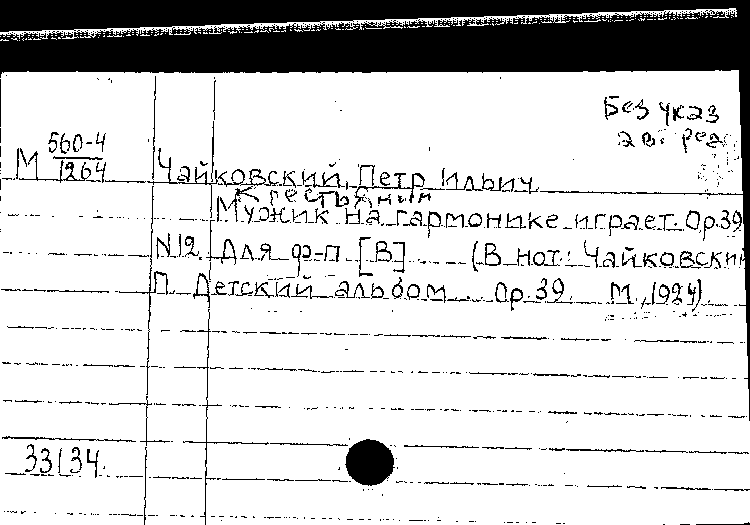 Без указ
ав. ред
М 560-4
1264
Чайковский, Петр Ильич.
Крестьянин
Мужик на гармонике играет. Ор.39
N12. Для ф-п. [В] ... (В нот: Чайковский
П. Детский альбом. Ор.39. М.,1924).
33134.